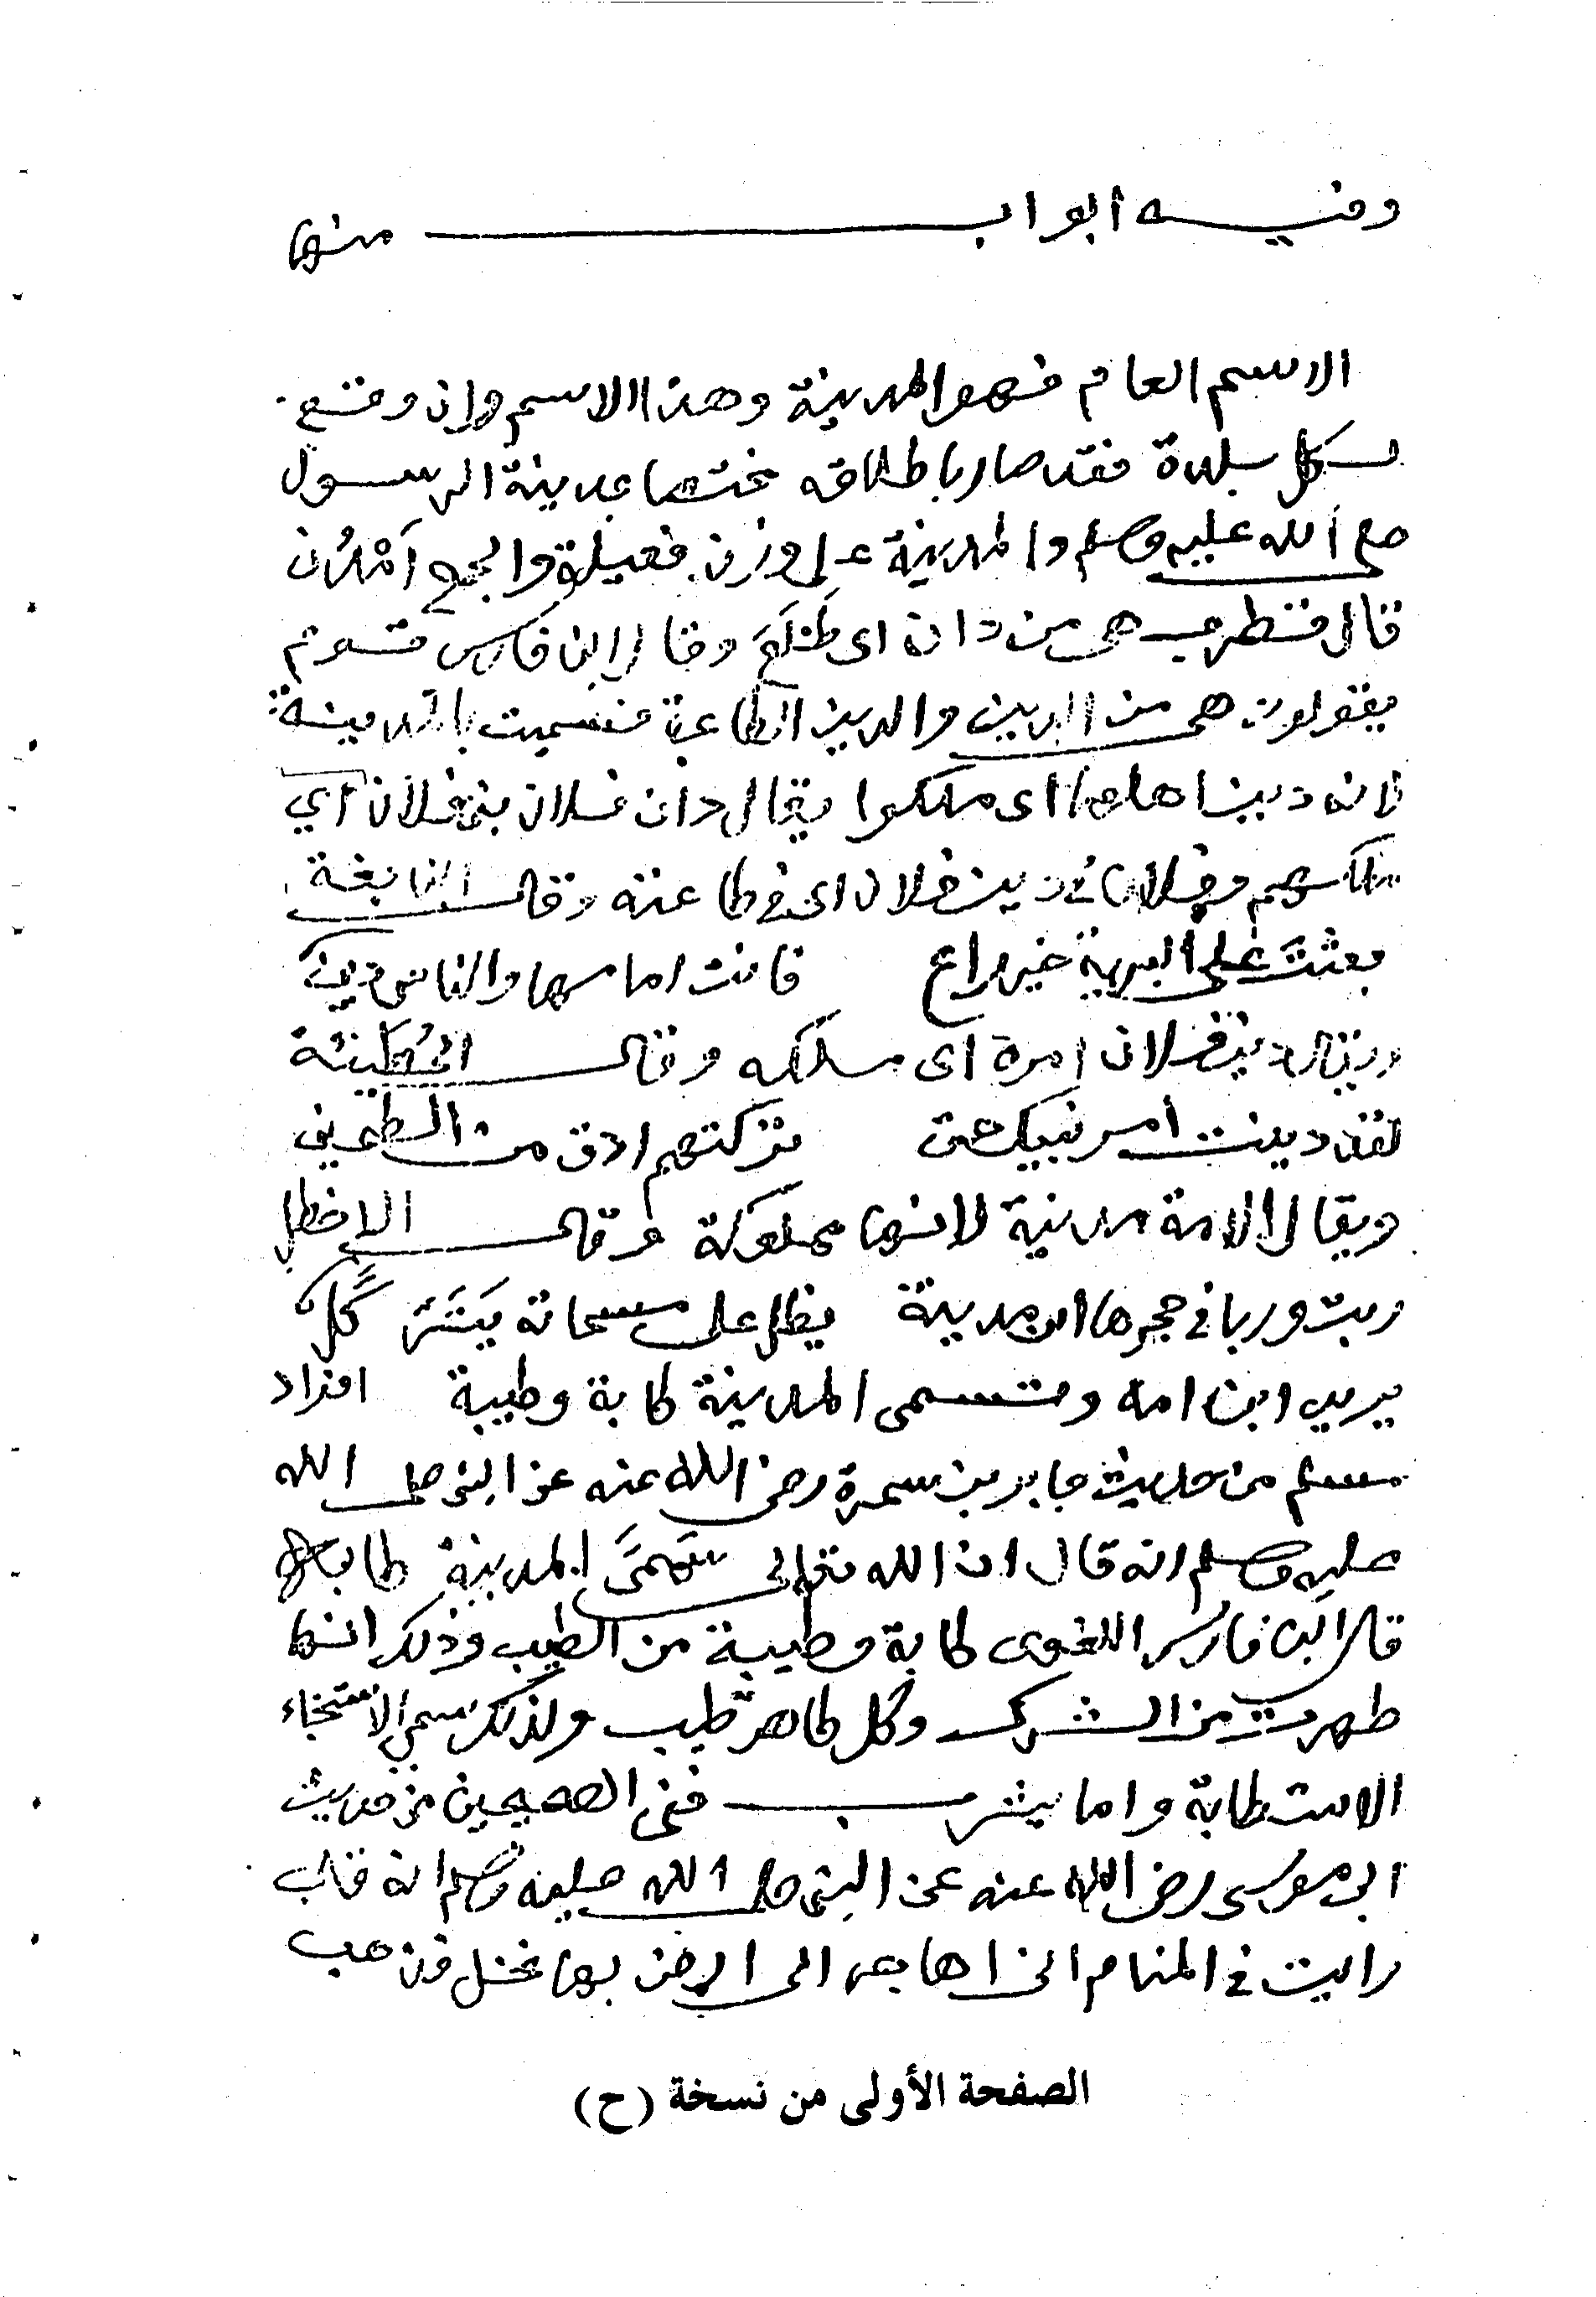 وفيه ابواب منها
الاسم العام فهو المدينة وهذا الاسم وإن وقع
لكل بلدة فقد صار باطلاقه مختصا بمدينة الرسول
صلى الله عليه وسلم والمدينة على وزن فعيلة والجمع اَمْدُن
قال قطرب هى من دان اى طلع وقال ابن فارس قوم
يقولون هى من الدين والدين الطاعة فسميت بالمدينة
لانه دين اهلها اى ملكوا يقال دان فلان بنى فلان اي
ملكهم وفلان فى دين فلان اى فى طاعته وقال النابغة
بعثت على البرية خير راع فانت امامها والناس دين
ويقال دين فلان امره اى ملكه وقال الحُطيئة
لقد دينت أمر بنيك حتى تركتهم ادق من الطحين
ويقال للامة مدينة لانها مملوكة وقال الاخطل
ربت وربا فى حجرها ابن مدينة يظل على مسحاته يتركل
يريد ابن امة وتسمى المدينة طابة وطيبة افراد
مسلم من حديث جابر بن سمرة رضى الله عنه عن النبى صلى الله
عليه وسلم انه قال ان الله تعالى سَمَّى المدينة طابة
قال ابن فارس اللغوى طابة وطيبة من الطيب وذلك انها
طهرت من الشرك وكل طاهر طيب ولذلك سمي الاستنجاء
الاستطابة واما يثرب ففى الصحيحين من حديث
ابى موسى رضى الله عنه عن النبى صلى الله عليه وسلم انه قال
رايت فى المنام انى اهاجر الى ارض بها نخل فذهب
الصفحة الأولى من نسخة (ح)